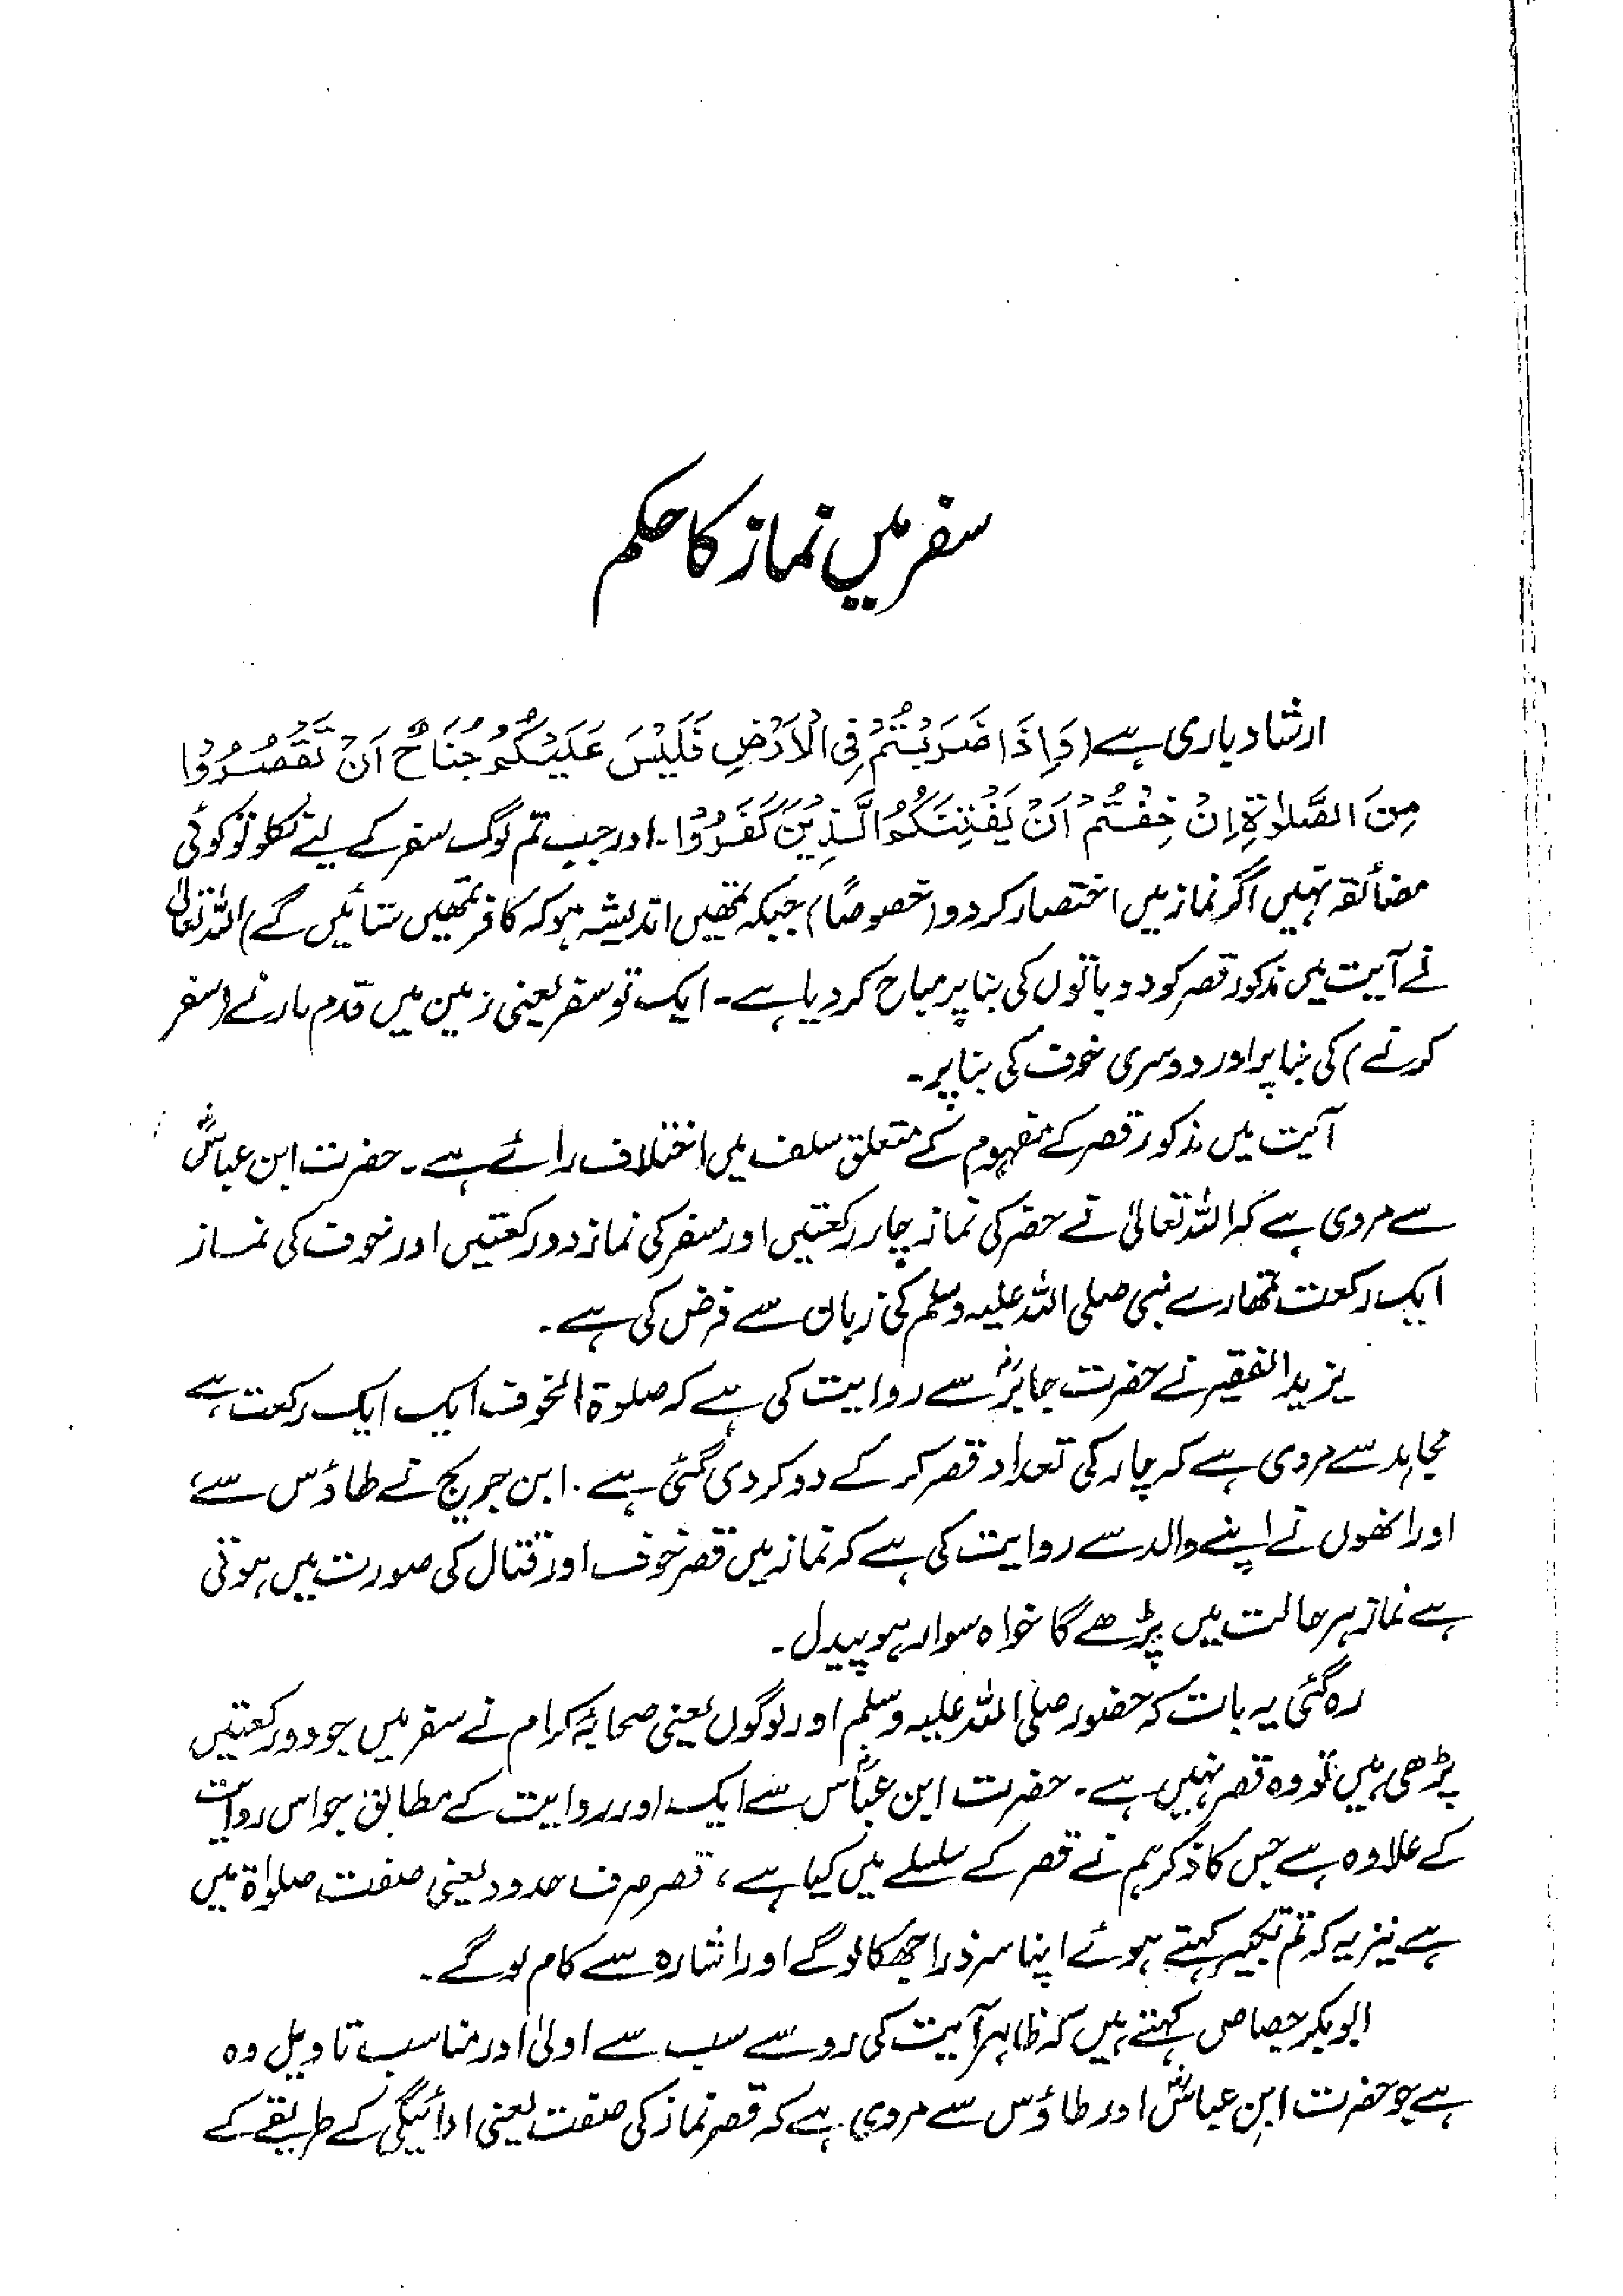 سفر میں نماز کا حکم
ارشاد باری ہے (وَاِذَا ضَرَبْتُمْ فِی الْاَرْضِ فَلَیْسَ عَلَیْکُمْ جُنَاحٌ اَنْ تَقْصُرُوْا
مِنَ الصَّلٰوۃِ اِنْ خِفْتُمْ اَنْ یَفْتِنَکُمُ الَّذِیْنَ کَفَرُوْا۔ اور جب تم لوگ سفر کے لیے نکلو تو کوئی
مضائقہ نہیں اگر نماز میں اختصار کر دو (خصوصًا) جبکہ تمھیں اندیشہ ہو کہ کافر تمھیں ستائیں گے) اللہ تعالیٰ
نے آیت میں مذکور قصر کو دو باتوں کی بنا پر مباح کر دیا ہے۔ ایک تو سفر یعنی زمین میں قدم مارنے (سفر
کرنے) کی بنا پر اور دوسری خوف کی بنا پر۔
آیت میں مذکور قصر کے مفہوم کے متعلق سلف میں اختلاف رائے ہے۔ حضرت ابن عباسؓ
سے مروی ہے کہ اللہ تعالیٰ نے حضر کی نماز چار رکعتیں اور سفر کی نماز دو رکعتیں اور خوف کی نماز
ایک رکعت تمھارے نبی صلی اللہ علیہ وسلم کی زبان سے فرض کی ہے۔
یزید الفقیر نے حضرت جابرؓ سے روایت کی ہے کہ صلوۃ الخوف ایک ایک رکعت ہے
مجاہد سے مروی ہے کہ چار کی تعداد قصر کر کے دو کر دی گئی ہے۔ ابن جریج نے طاؤس سے،
اور انھوں نے اپنے والد سے روایت کی ہے کہ نماز میں قصر خوف اور قتال کی صورت میں ہوتی
ہے نماز ہر حالت میں پڑھے گا خواہ سوار ہو پیدل۔
رہ گئی یہ بات کہ حضور صلی اللہ علیہ وسلم اور لوگوں یعنی صحابۂ کرام نے سفر میں جو دو رکعتیں
پڑھی ہیں تو وہ قصر نہیں ہے۔ حضرت ابن عباسؓ سے ایک اور روایت کے مطابق جو اس روایت
کے علاوہ ہے جس کا ذکر ہم نے قصر کے سلسلے میں کیا ہے، قصر صرف حدود یعنی صفت صلوٰۃ میں
ہے نیز یہ کہ تم تکبیر کہتے ہوئے اپنا سر ذرا جھکا لو گے اور اشارہ سے کام لو گے۔
ابوبکر جصاص کہتے ہیں کہ ظاہر آیت کی رو سے سب سے اولیٰ اور مناسب تاویل وہ
ہے جو حضرت ابن عباسؓ اور طاؤس سے مروی ہے کہ قصر نماز کی صفت یعنی ادائیگی کے طریقے کے